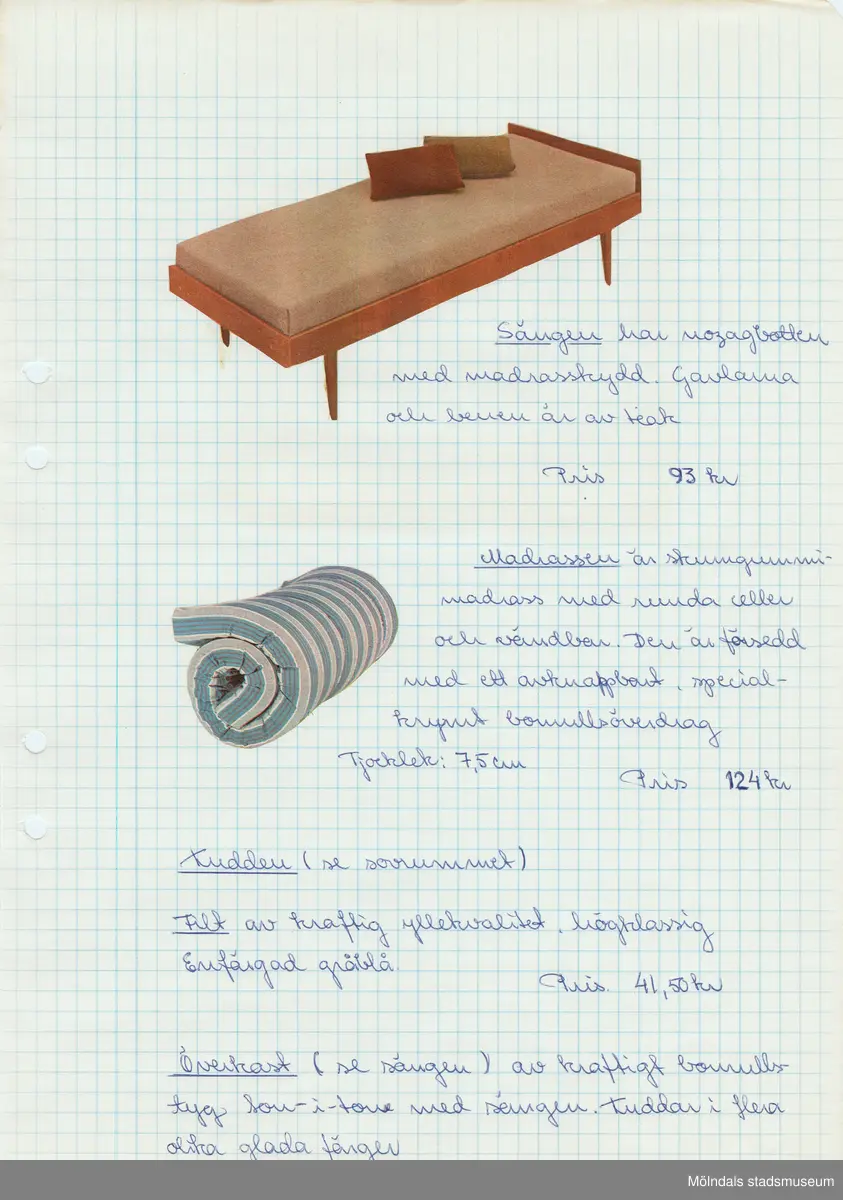 Sängen har nozagbotten
med madrasskydd. Gavlarna
och benen är av teak
Pris 93 kr
Madrassen är skumgummi-
madrass med runda celler
och vändbar. Den är försedd
med ett avknäppbart, special-
krympt bomullsöverdrag
Tjocklek: 7,5 cm
Pris 124 kr
Kudden (se sovrummet)
Filt av kraftig yllekvalitet, högklassig
Enfärgad gråblå.
Pris. 41,50 kr
Överkast (se sängen) av kraftigt bomulls-
tyg ton-i-ton med sängen. Kuddar i flera
olika glada färger
Mölndals stadsmuseum